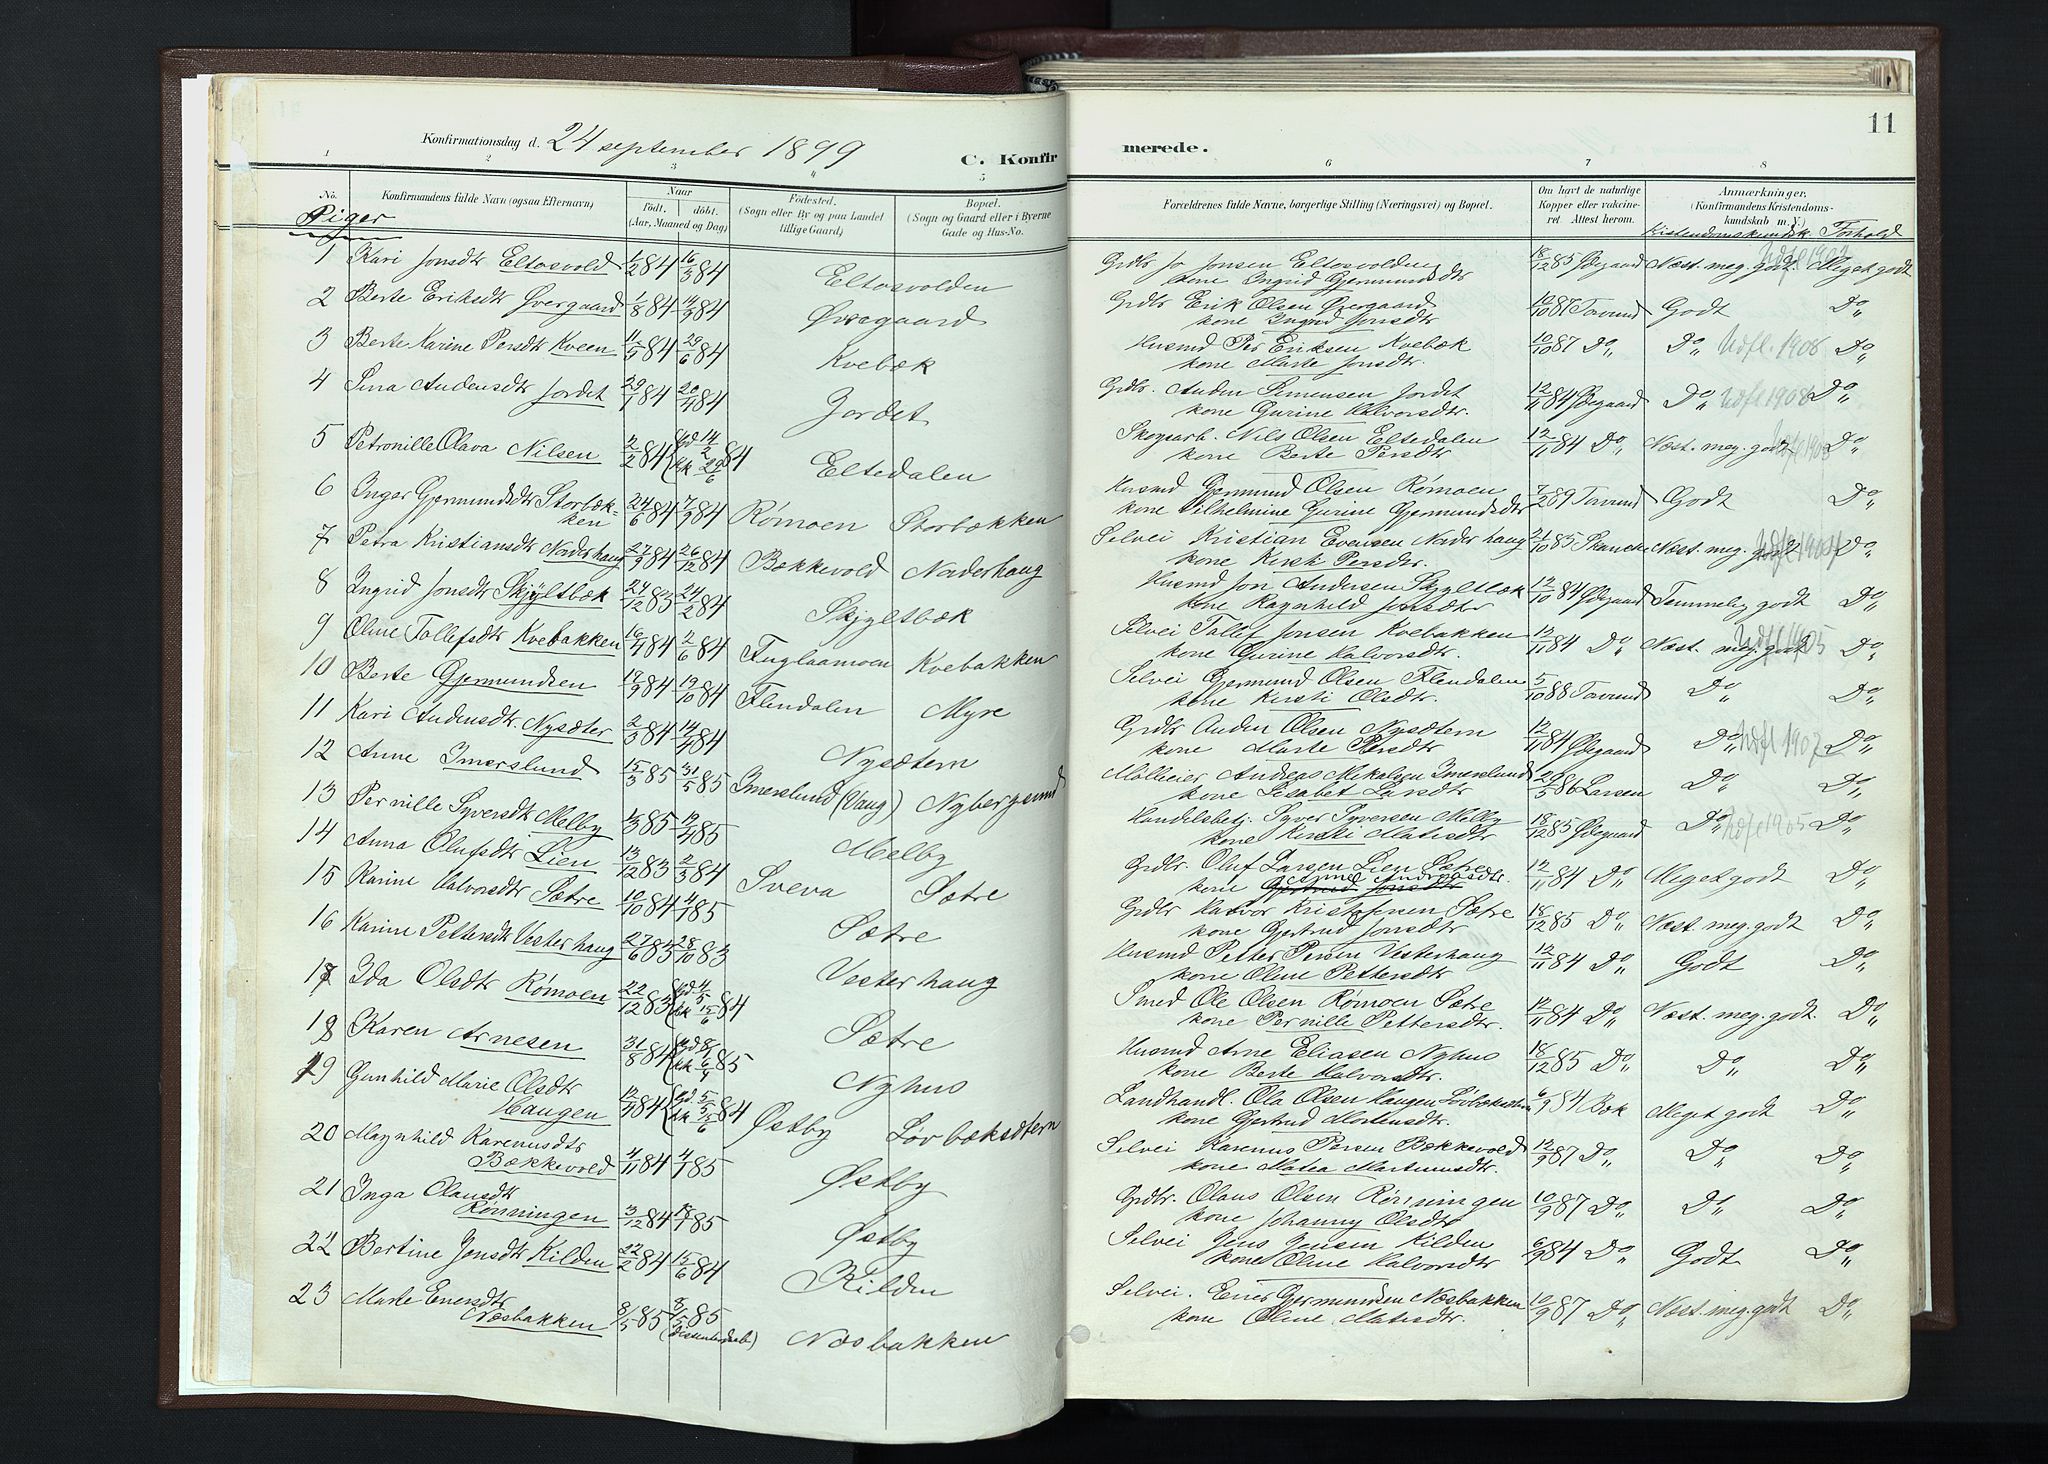 Konfirmationsdag d. 24 september 1899
C. Konfirmerede.
11
1 2 3 4 5 6 7 8
No. Konfirmandens fulde Navn (ogsaa Efternavn) Naar født. døbt. (Aar, Maaned og Dag) Fødested. (Sogn eller By og paa Landet tillige Gaard) Bopæl. (Sogn og Gaard eller i Byerne Gade og Hus-No. Forældrenes fulde Navne, borgerlige Stilling (Næringsvei) og Bopæl. Om havt de naturlige Kopper eller vaccineret. Attest herom. Anmærkninger. (Konfirmandens Kristendomskundskab m. V.)
Piger
Kristendomskundsk. Forhold
1 Kari Jonsdtr Eltosvold 84 16/3 84 Eltosvolden Grdbr Jo Jonsen Eltosvolden 18/12 85 Ødegaard Næst. meg. godt Meget godt
kone Ingrid Gjermundsdtr
2 Berte Eriksdtr Øvergaard 1/8 84 14/9 84 Øvregaard Grdbr Erik Olsen Øvergaard 10/10 87 Tovund Godt Do
kone Ingrid Jonsdtr
3 Berte Karine Persdtr Kveen 84 29/6 84 Kvebæk Husmd Per Eriksen Kvebæk 10/10 87 Do Do Udfl. 1908 Do
kone Marte Jonsdtr
4 Sina Audensdtr Jordet 84 20/4 84 Jordet Grdbr. Auden Simensen Jordet 12/11 84 Ødegaard Do Udfl 1908 Do
kone Gurine Halvorsdtr.
5 Petronille Olava Nilsen 2/2 84 Gd 14/2 kk 29/6 84 Eltedalen Skogsarb. Nils Olsen Eltedalen 12/11 84 Do Næst. meg. godt Do
kone Berte Persdtr
6 Inger Gjermundsdtr Storbækken 24/6 84 7/9 84 Rømoen Storbækken Husmd Gjermund Olsen Rømoen 7/2 89 Tovund Godt Do
kone Vilhelmine Gurine Gjermundsdtr
7 Petra Kristiansdtr Nøderhaug 27/9 84 26/12 84 Bækkevold Nøderhaug Selvei Kristian Evensen Nøderhaug 21/10 85 Skancke Næst. meg. godt Do
kone Kirsti Persdtr.
8 Ingrid Jonsdtr Skjyltbæk 24/12 83 24/2 84 Skjyltbæk Husmd Jon Andersen Skjyltbæk 12/10 84 Ødegaard Temmelig godt Do
kone Ragnhild
9 Oline Tollefsdtr Kvebakken 16/4 84 2/6 84 Fuglaamoen Kvebakken Selvei Tollef Jonsen Kvebakken 12/11 84 Do Næst. meg. godt Udfl 1905 Do
kone Gurine Halvorsdtr.
10 Berte Gjermundsen 17/9 84 19/10 84 Flendalen Myre Selvei Gjermund Olsen Flendalen 5/10 88 Tovund Do Do
kone Kirsti Olsdtr.
11 Kari Audensdtr. Nysæter 2/3 84 14/4 84 Nysætern Grdbr Auden Olsen Nysætern 12/11 84 Ødegaard Do Udfl 1907 Do
kone Marte Persdtr
12 Anne Imerslund 15/3 85 31/5 85 Imerslund (Vang) Nybergsund Mølleier Andreas Mikalsen Imerslund 20/5 86 Larsen Do Do
kone Lisabet Larsdtr
13 Pernille Syversdtr Melby 85 12/4 85 Melby Handelsbetj. Syver Syversen Melby 18/12 85 Ødegaard Do Udfl 1905 Do
kone Kirsti Matisdtr
14 Anna Olufsdtr Lien 13/12 83 2/3 84 Sveva Sætre Grdbr. Oluf Larsen Lien Sætre 12/11 84 Do Meget godt Do
kone Gjertrud Jonsdtr
15 Karine Halvorsdtr Sætre 10/10 84 4/1 85 Sætre Grdbr Halvor Kristofersen Sætre 18/12 85 Do Næst. meg. godt Do
kone Gjertrud Jonsdtr
16 Karine Pettersdtr Vesterhaug 27/6 83 28/10 83 Vesterhaug Husmd Petter Persen Vesterhaug 12/11 84 Do Godt Do
kone Oline Pettersdtr
17 Ida Olsdtr Rømoen 22/12 83 Gd 4/5 kk 15/6 84 Sætre Smed Ole Olsen Rømoen Sætre 12/11 84 Do Næst. meg. godt Do
kone Pernille Pettersdtr.
18 Karen Arnesen 31/8 84 85 Nyhus Husmd Arne Eliasen Nyhus 18/12 85 Do Do Do
kone Berte Halvorsdtr.
19 Gunhild Marie Olsdtr 12/4 84 Gd. 5/5 kk 84 Østby Løvbæksætern Landhandl. Ola Olsen Haugen Løvbæksætern 6/9 84 Bæk Meget godt Do
Haugen kone Gjertrud Mortensdtr.
20 Magnhild Karenusdtr 4/11 84 4/1 85 Østby Selvei Karenus Persen Bækkevold 12/9 87 Do Do Do
Bækkevold kone Matea Martinusdtr.
21 Inga Olausdtr 3/12 84 18/1 85 Østby Grdbr. Olaus Olsen Rønningen 10/9 87 Do Do Do
Rønningen kone Johanny Olsdtr
22 Bertine Jensdtr Kilden 22/2 84 15/6 84 Kilden Selvei Jens Jensen Kilden 6/9 84 Do Godt Do
kone Oline Halvorsdtr
23 Marte Enersdtr 8/5 85 85 Næsbakken Selvei. Ener Gjermundsen Næsbakken 10/9 87 Do Næst. meg. godt Do
Næsbakken kone Oline Matisdtr.